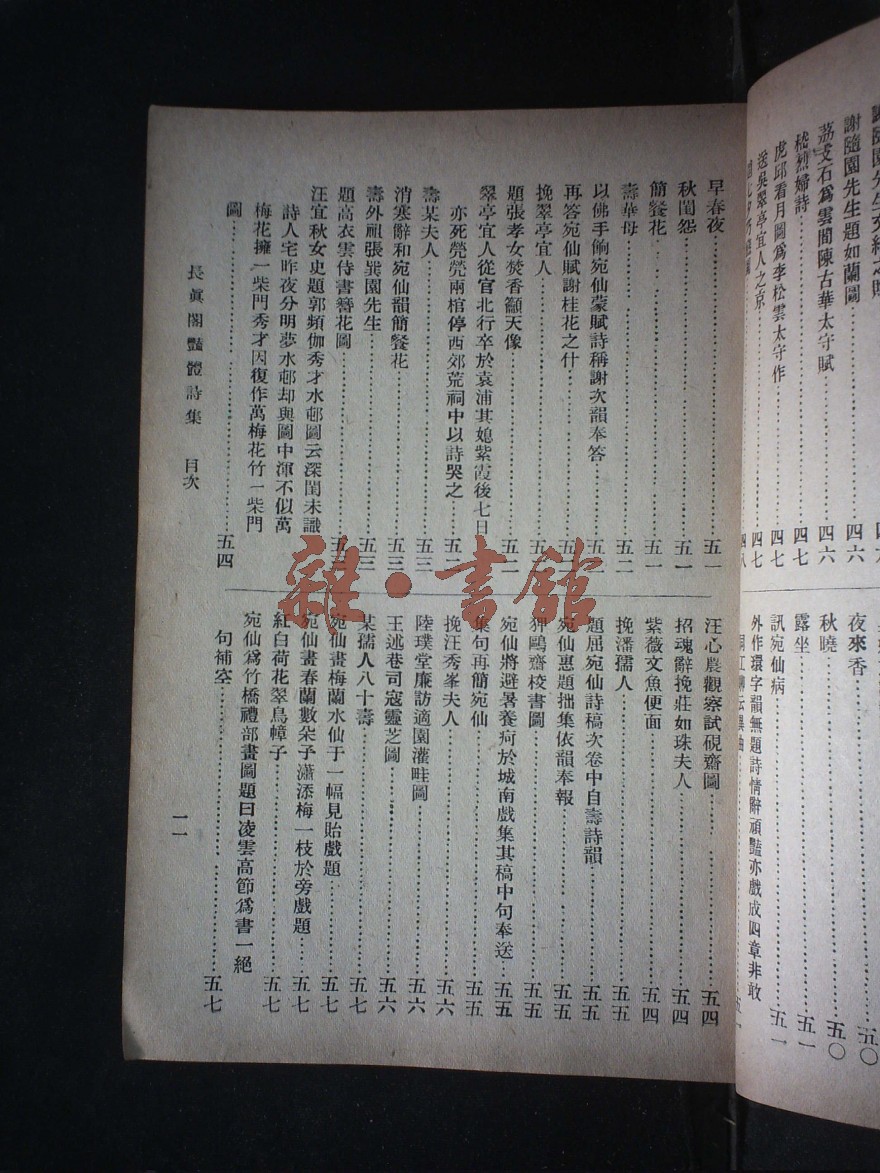 謝隨園先生題如蘭圖……四六
荔支石爲雲間陳古華太守賦……四六
嵇烈婦詩……四七
虎邱看月圖爲李松雲太守作……四七
送吳翠亭宜人之京……四七
夜來香……五〇
秋曉……五〇
露坐……五一
訊宛仙病……五一
外作環字韻無題詩情辭頑豔亦戲成四章非敢
早春夜……五一
秋閨怨……五一
簡餐花……五一
壽華母……五二
以佛手餉宛仙蒙賦詩稱謝次韻奉答……五二
再答宛仙賦謝桂花之什……五二
挽翠亭宜人……五二
題張孝女焚香籲天像……五二
翠亭宜人從官北行卒於袁浦其媳紫霞後七日
亦死煢煢兩棺停西郊荒祠中以詩哭之……五二
壽某夫人……五三
消寒辭和宛仙韻簡餐花……五三
壽外祖張巽園先生……五三
題高衣雲侍書簪花圖……五三
汪宜秋女史題郭頻伽秀才水邨圖云深閨未識
詩人宅昨夜分明夢水邨却與圖中渾不似萬
梅花擁一柴門秀才因復作萬梅花竹一柴門
圖……五四
汪心農觀察試硯齋圖……五四
招魂辭挽莊如珠夫人……五四
紫薇文魚便面……五四
挽潘孺人……五五
題屈宛仙詩稿次卷中自壽詩韻……五五
宛仙惠題拙集依韻奉報……五五
狎鷗齋校書圖……五五
宛仙將避暑養疴於城南戲集其稿中句奉送……五五
集句再簡宛仙……五五
挽汪秀峯夫人……五六
陸璞堂廉訪適園灌畦圖……五六
王述巷司寇靈芝圖……五六
某孺人八十壽……五七
宛仙畫梅蘭水仙于一幅見貽戲題……五七
宛仙畫春蘭數朵予瀟添梅一枝於旁戲題……五七
紅白荷花翠鳥幛子……五七
宛仙爲竹橋禮部畫圖題曰凌雲高節爲書一絕
句補空……五七
長眞閣豔體詩集 目次
一一
雜·書館